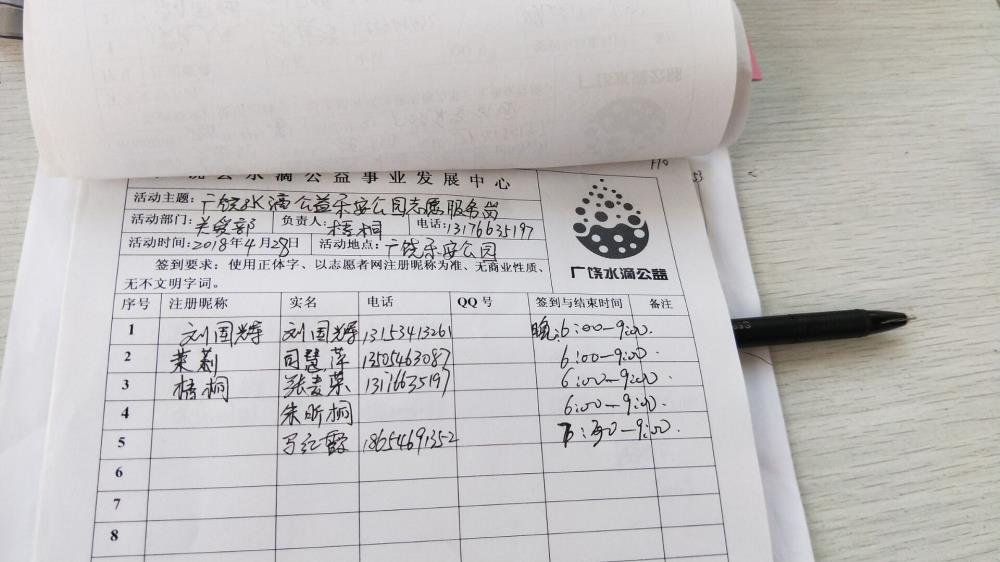 水滴公益事业发展中心
活动主题：广饶水滴公益乐安公园志愿服务岗
活动部门：关爱部 负责人：梧桐 电话：13176635197
活动时间：2018年4月28日 活动地点：广饶乐安公园
签到要求：使用正体字、以志愿者网注册昵称为准、无商业性质、
无不文明字词。
广饶水滴公益
序号 注册昵称 实名 电话 QQ号 签到与结束时间 备注
1 刘国辉 刘国辉 13153413261 晚：6:00-9:00.
2 茉莉 司慧萍 13505463087 6:00-9:00.
3 梧桐 张麦荣 13176635197 6:00-9:00.
4 朱昕桐 6:00-9:00.
5 马红霞 18654691352 7:30-9:00.
6
7
8